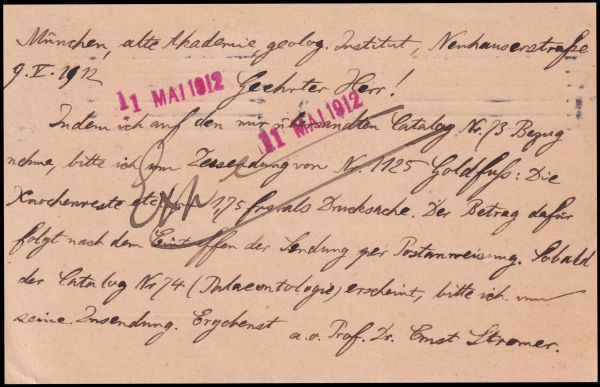 München, alte Akademie, geolog. Institut, Neuhauserstraße
9. V. 1912
11 MAI 1912
Geehrter Herr!
11 MAI 1912
Indem ich auf den mir übersandten Catalog Nr. 73 Bezug
nehme, bitte ich um Zusendung von Nr. 1125 Goldfuß: Die
Knochenreste etc. 1,75 frs als Drucksache. Der Betrag dafür
folgt nach dem Eintreffen der Sendung per Postanweisung. Sobald
der Catalog Nr 74 (Palaeontologie) erscheint, bitte ich um
seine Zusendung. Ergebenst
a. o. Prof. Dr. Ernst Stromer.